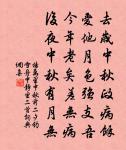 去歲中秋政病餘
愛他月色强支吾
今年差老差無病
後夜中秋有月無
楊萬里中秋前二夕釣
雪舟中靜坐二首詞典
網集